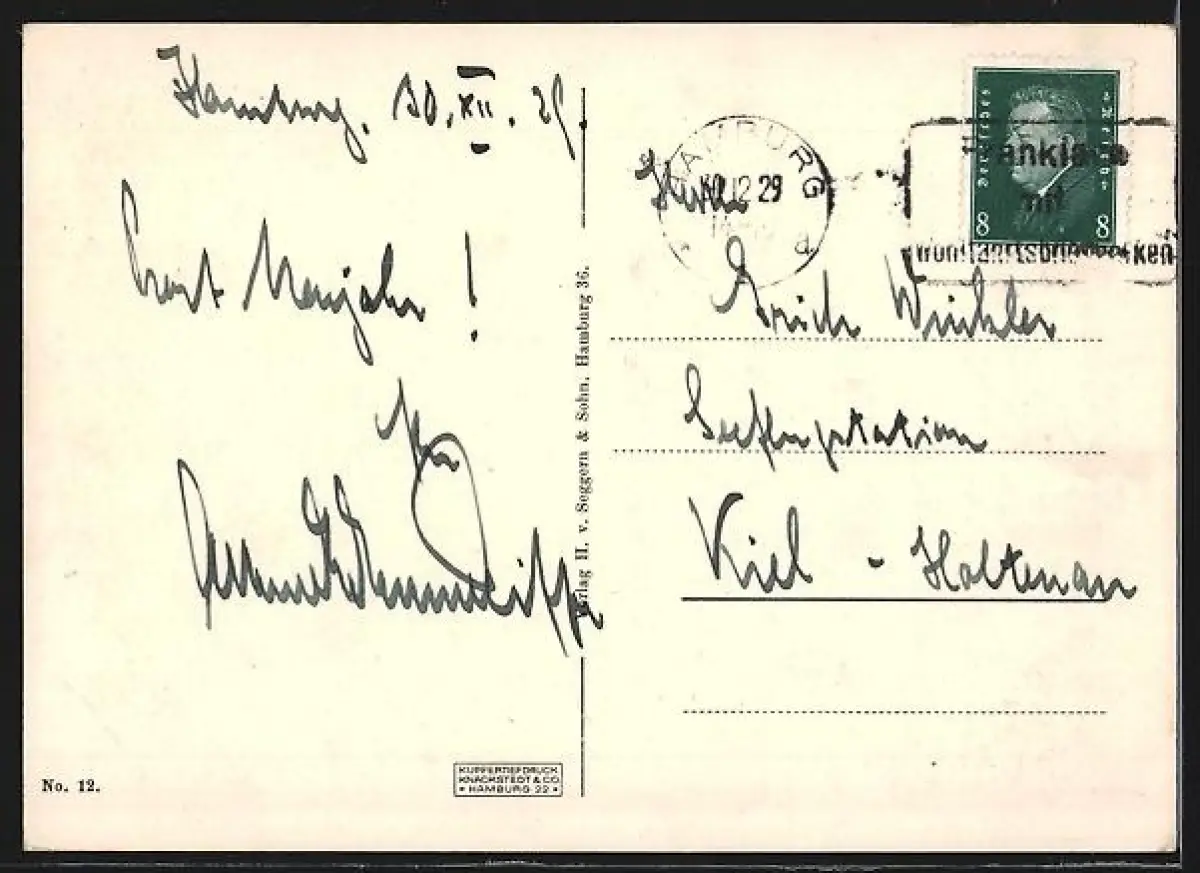 Hamburg, 30. XII. 29.
Prost Neujahr!
Ihr
Herrn
Erich Winkler
Seeflugstation
Kiel - Holtenau
HAMBURG
30.12 29
Deutsches Reich
8 8
mit
Verlag H. v. Seggern & Sohn, Hamburg 36.
No. 12.
KUPFERTIEFDRUCK
KNACKSTEDT & CO.
• HAMBURG 22 •